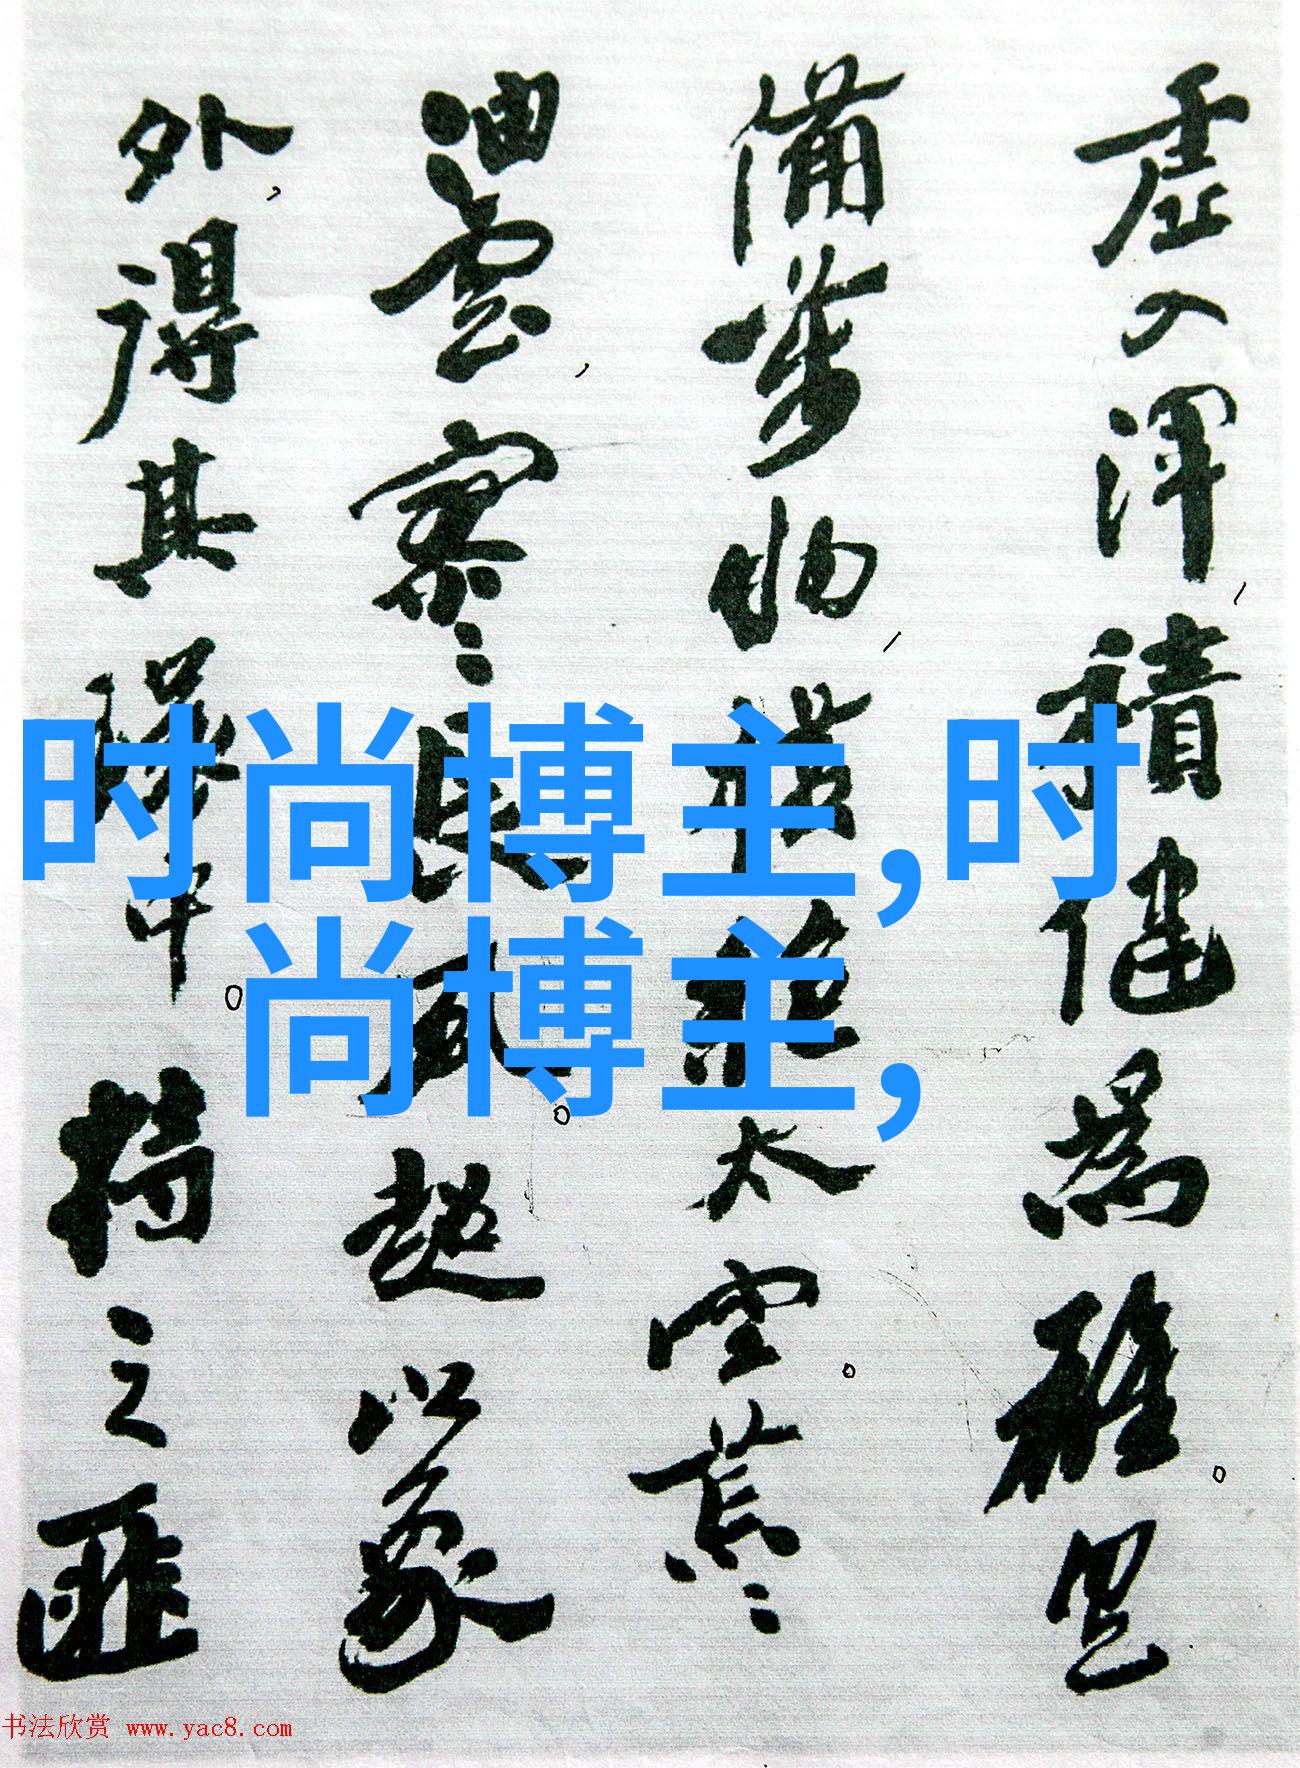 虚入渾，積健為雄。具
備萬物，横絶太空。荒々
油雲，寥々長風。超以象
外，得其環中。持之匪
时尚博主,时
尚博主,
书法欣赏 www.yac8.com